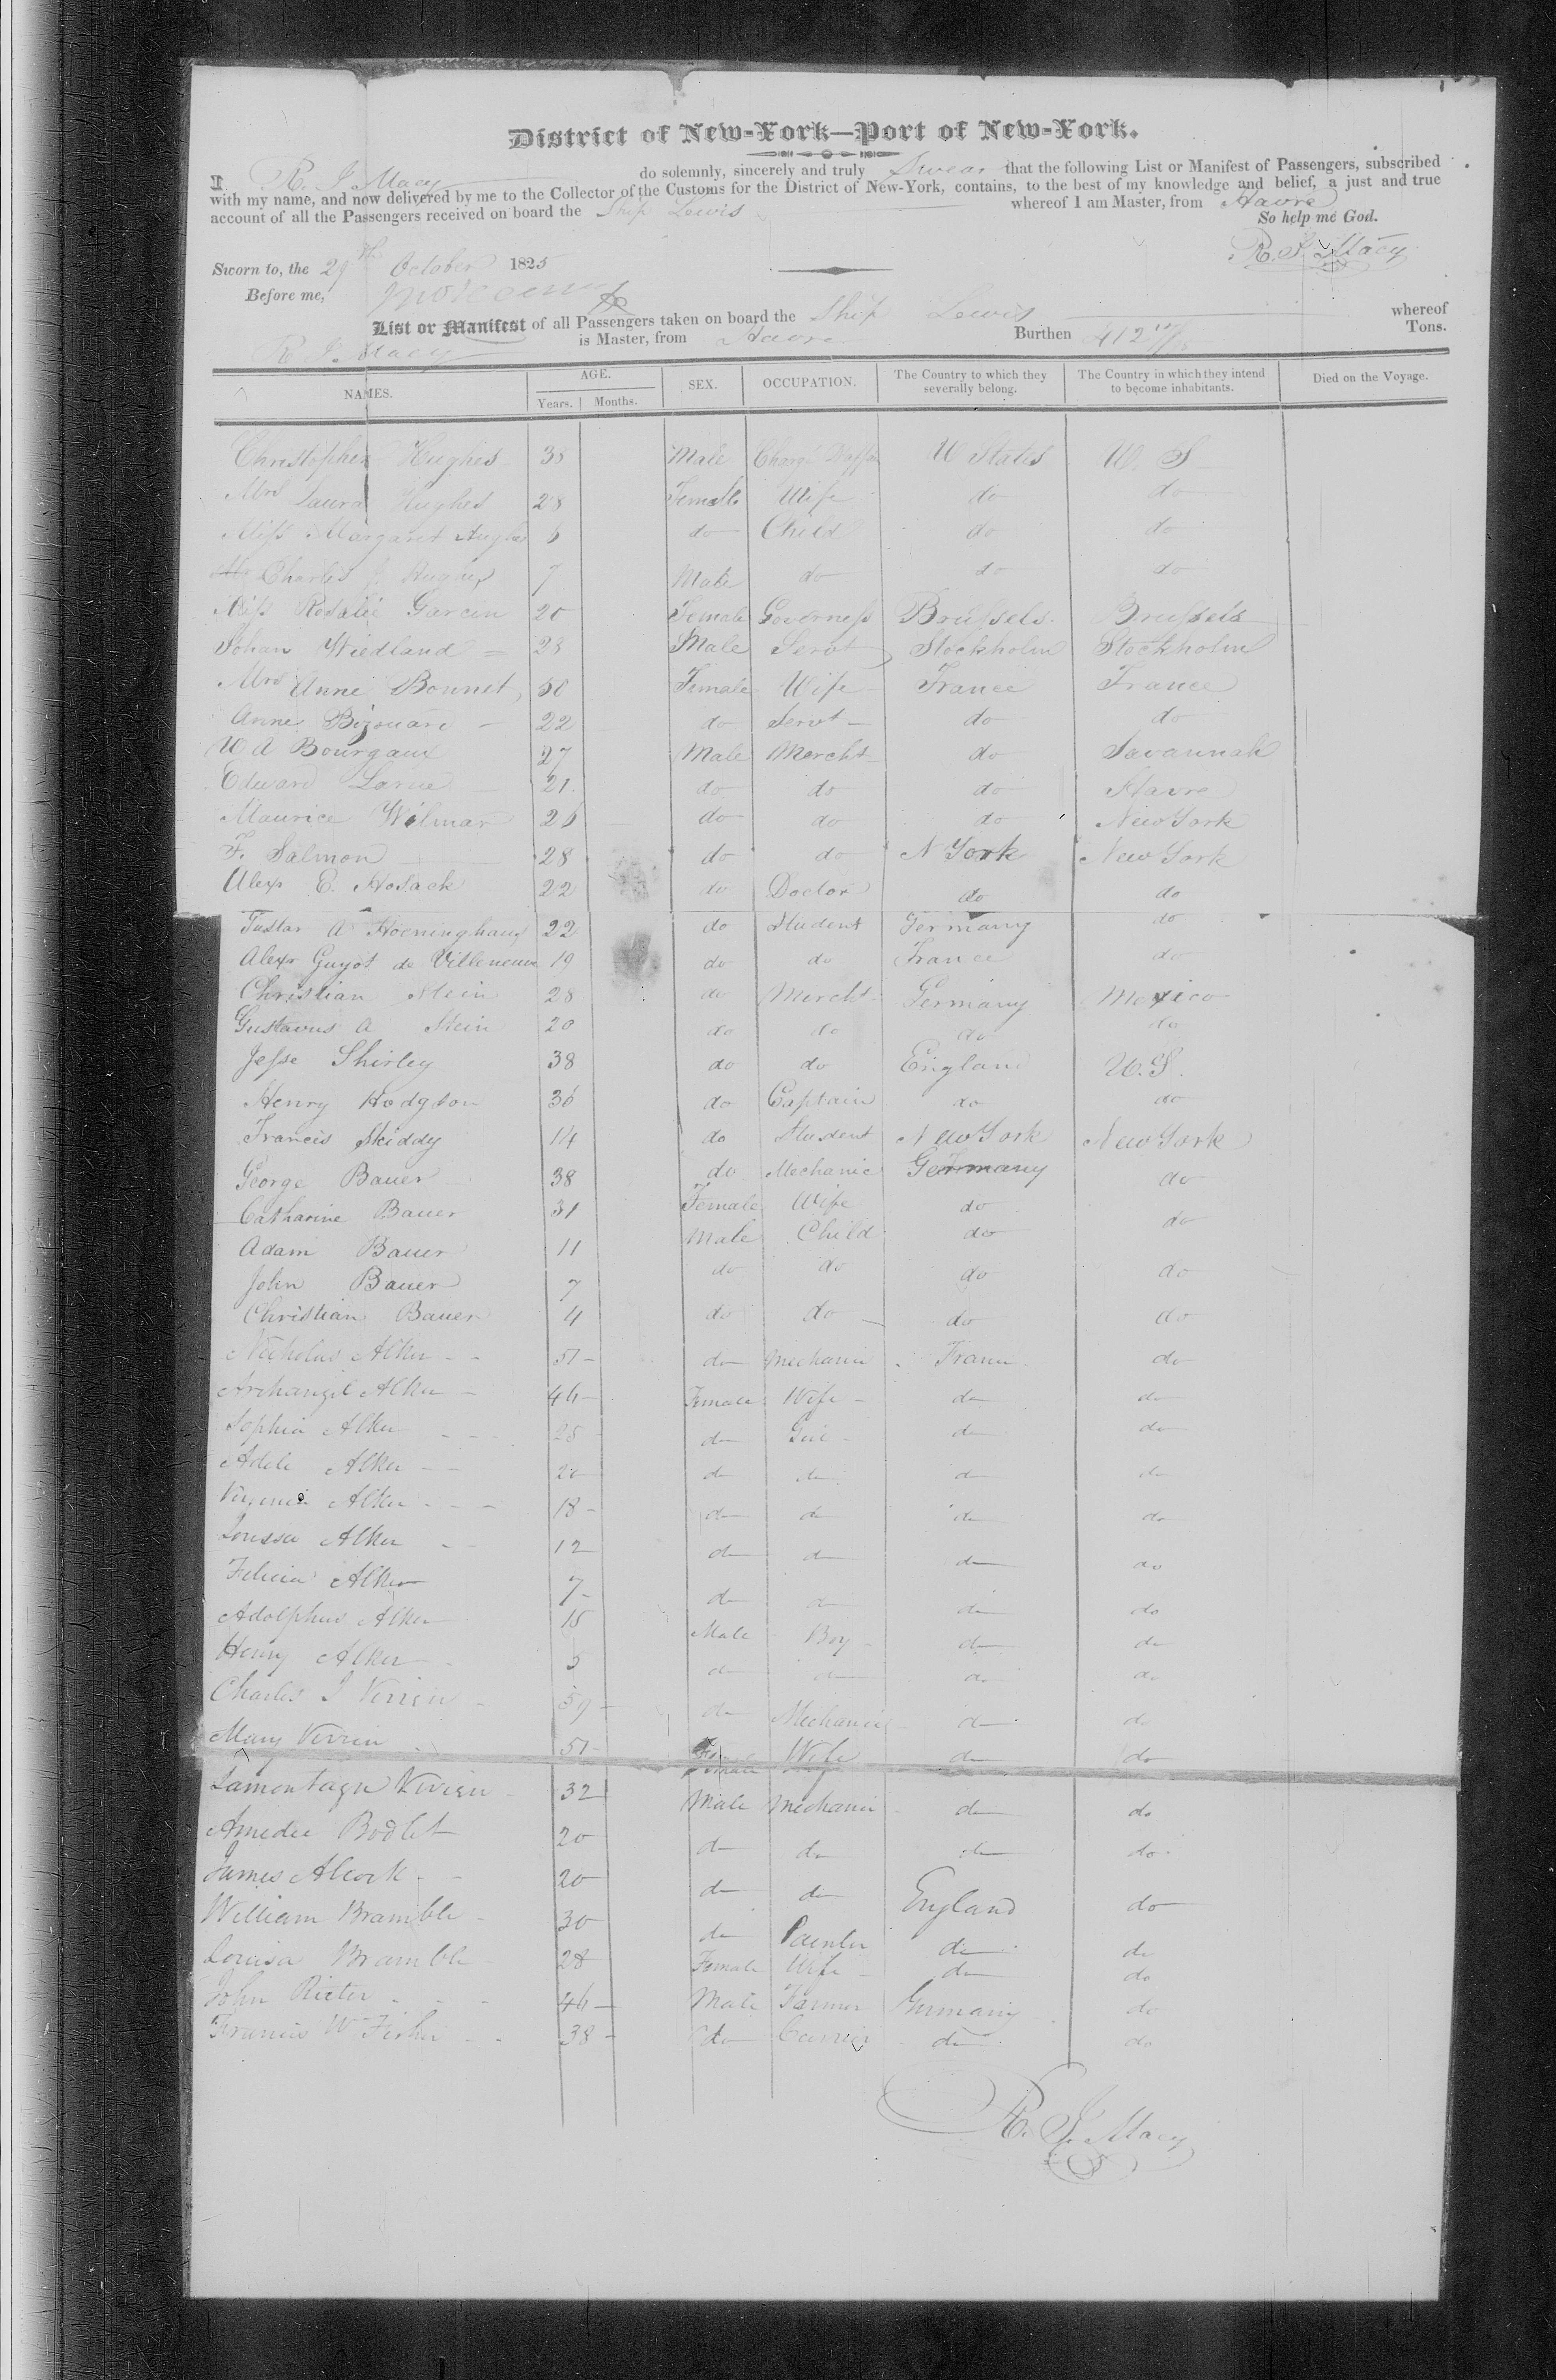 District of New-York—Port of New-York.
I R. J. Macy do solemnly, sincerely and truly Swear that the following List or Manifest of Passengers, subscribed
with my name, and now delivered by me to the Collector of the Customs for the District of New-York, contains, to the best of my knowledge and belief, a just and true
account of all the Passengers received on board the Ship Lewis whereof I am Master, from Havre
So help me God.
Sworn to, the 29th October 1825 R. J. Macy
Before me,
List or Manifest of all Passengers taken on board the Ship Lewis whereof
R J Macy is Master, from Havre Burthen 412 Tons.
NAMES. AGE. Years. Months. SEX. OCCUPATION. The Country to which they severally belong. The Country in which they intend to become inhabitants. Died on the Voyage.
Christopher Hughes 38 Male Chargé Daffa U States U. S
Mrs Laura Hughes 28 Female Wife do do
Miss Margaret Hughes 6 do Child do do
Charles J. Hughes 7 Male do do do
Miss Rosalie Garcin 20 Female Governess Brussels. Brussels
Johan Wiedland 23 Male Servt Stockholm Stockholm
Mrs Anne Bonnet, 50 Female Wife France France
Anne Bizouard 22 do Servt do do
W A Bourgaud 27 Male Mercht do Savannah
Edward Larue 21 do do do Havre
Maurice Wilmar 26 do do do New York
F. Salmon 28 do do N York New York
Alexr E. Hosack 22 do Doctor do do
Tustar A Hoeninghaus 22 do Student Germany do
Alexr Guyot de Villeneuve 19 do do France do
Christian Stein 28 do Mercht Germany Mexico
Gustavus A Stein 20 do do do do
Jesse Shirley 38 do do England U.S.
Henry Hodgson 36 do Captain do do
Francis Skiddy 14 do Student New York New York
George Bauer 38 do Mechanic Germany do
Catharine Bauer 31 Female Wife do do
Adam Bauer 11 Male Child do
John Bauer 7 do do do do
Christian Bauer 4 do do do do
Nicholas Alker 51 do Mechanic France do
Archangil Alker 46 Female Wife do do
Sophia Alker 25 do Girl do do
Adele Alker 20 do do do do
Virginia Alker 18 do do do do
Louisa Alker 12 do do do do
Felicia Alker 7 do do do do
Adolphus Alker 15 Male Boy do do
Henry Alker 5 do do do do
Charles J Verrien 59 do Mechanic do do
Mary Verrien 51 Female Wife do do
Lamontagn Verrien 32 Male Mechanic do do
Amedee Bodlet 20 do do do do
James Alcock 20 do do England do
William Bramble 30 do Painter do do
Louisa Bramble 28 Female Wife do do
John Rieter 46 Male Farmer Germany do
Francis W Fisher 38 do Currier do do
R. J. Macy